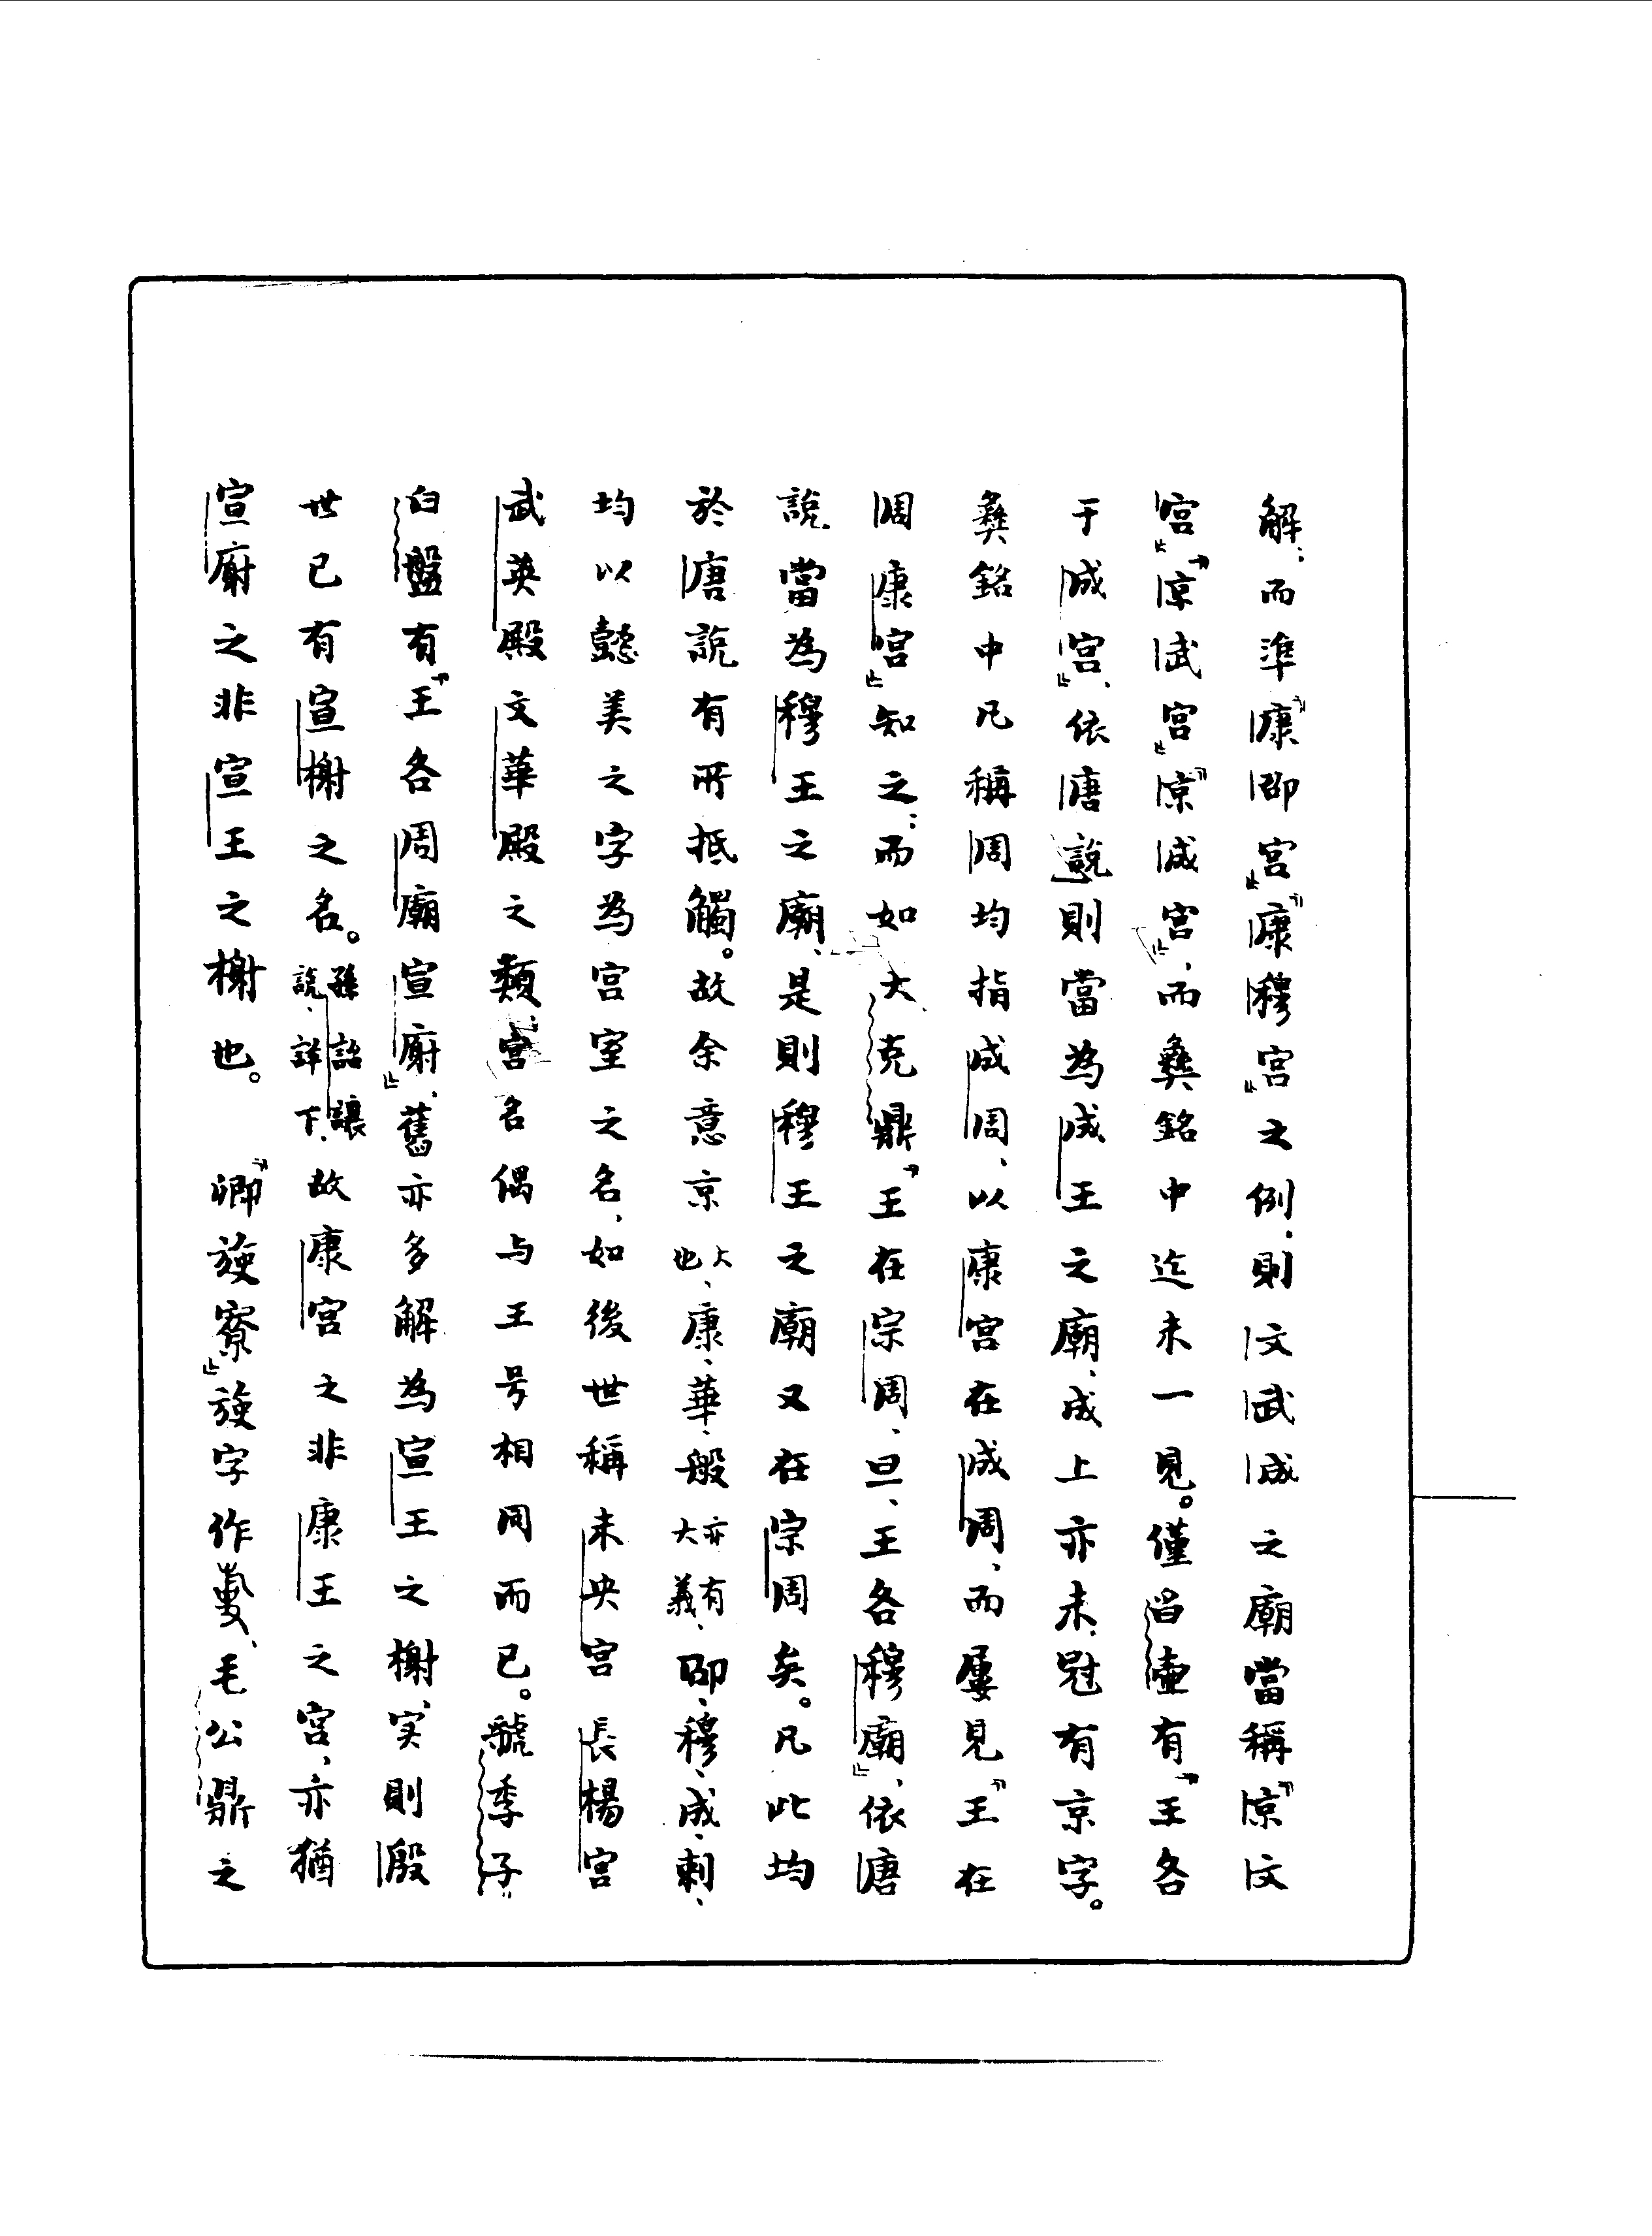 解；而準『康卲宮』『康穆宮』之例，則文武成之廟當稱『京文
宮』『京武宮』『京成宮』，而彝銘中迄未一見。僅舀壺有『王各
于成宮』、依唐說則當為成王之廟，成上亦未冠有京字。
彝銘中凡稱周均指成周、以康宮在成周、而屢見『王在
周康宮』知之；而如大克鼎『王在宗周、旦、王各穆廟』、依唐
說、當為穆王之廟、是則穆王之廟又在宗周矣。凡此均
於唐說有所抵觸。故余意京大也、康、華、般亦有大義、卲、穆、成、剌、
均以懿美之字為宮室之名，如後世稱未央宮長楊宮
武英殿文華殿之類，宮名偶与王号相同而已。虢季子
白盤有『王各周廟宣廚』、舊亦多解為宣王之榭、实則殷
世已有宣榭之名。孫詒讓說、詳下、故康宮之非康王之宮，亦猶
宣廚之非宣王之榭也。　『卿旋寮』旋字作、毛公鼎之